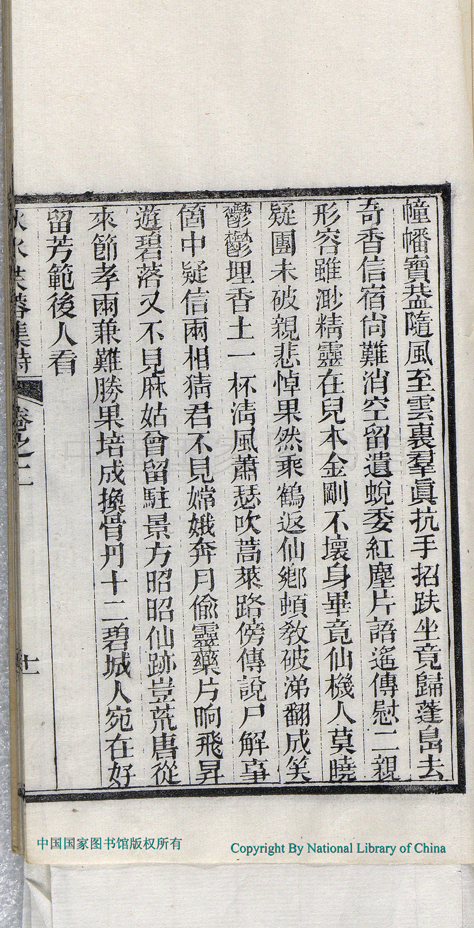 幢幡寶葢隨風至雲裏羣真抗手招趺坐竟歸蓬島去
奇香信宿尙難消空留遺蛻委紅塵片語遙傳慰二親
形容雖渺精靈在兒本金剛不壞身畢竟仙機人莫曉
疑團未破親悲悼果然乘鶴返仙鄉頓教破涕翻成笑
鬱鬱埋香土一杯淸風蕭瑟吹蒿萊路傍傳說尸解事
箇中疑信兩相猜君不見嫦娥奔月偷靈藥片晌飛昇
遊碧落又不見麻姑曾留駐景方昭昭仙跡豈荒唐從
來節孝兩兼難勝果培成換骨丹十二碧城人宛在好
留芳範後人看
水芙蓉集詩 卷之二 十
中国国家图书馆版权所有
Copyright By National Library of China